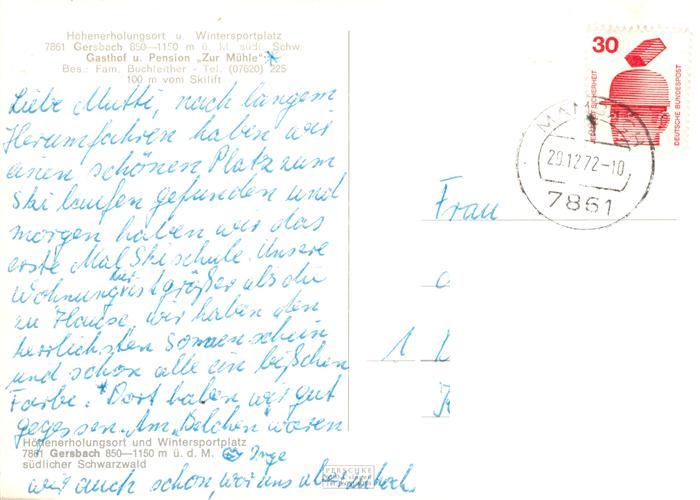 Höhenerholungsort u. Wintersportplatz
7861 Gersbach 850—1150 m ü. M. südl. Schw.
Gasthof u. Pension „Zur Mühle" *
Bes.: Fam. Buchleither - Tel. (07620) 225
100 m vom Skilift
Liebe Mutti, nach langem
Herumfahren haben wir
einen schönen Platz zum
Ski laufen gefunden und
morgen haben wir das
erste Mal Skischule. Unsere
Wohnung hier ist größer als die
zu Hause, wir haben den
herrlichsten Sonnenschein
und schon alle ein bißchen
Farbe. * Dort haben wir gut
gegessen. Am „Belchen" waren
wir auch schon, war uns aber zu hoch
Inge
Höhenerholungsort und Wintersportplatz
7861 Gersbach 850—1150 m ü. d. M.
südlicher Schwarzwald
30
DEUTSCHE BUNDESPOST
29.12.72-10
7861
Frau
1